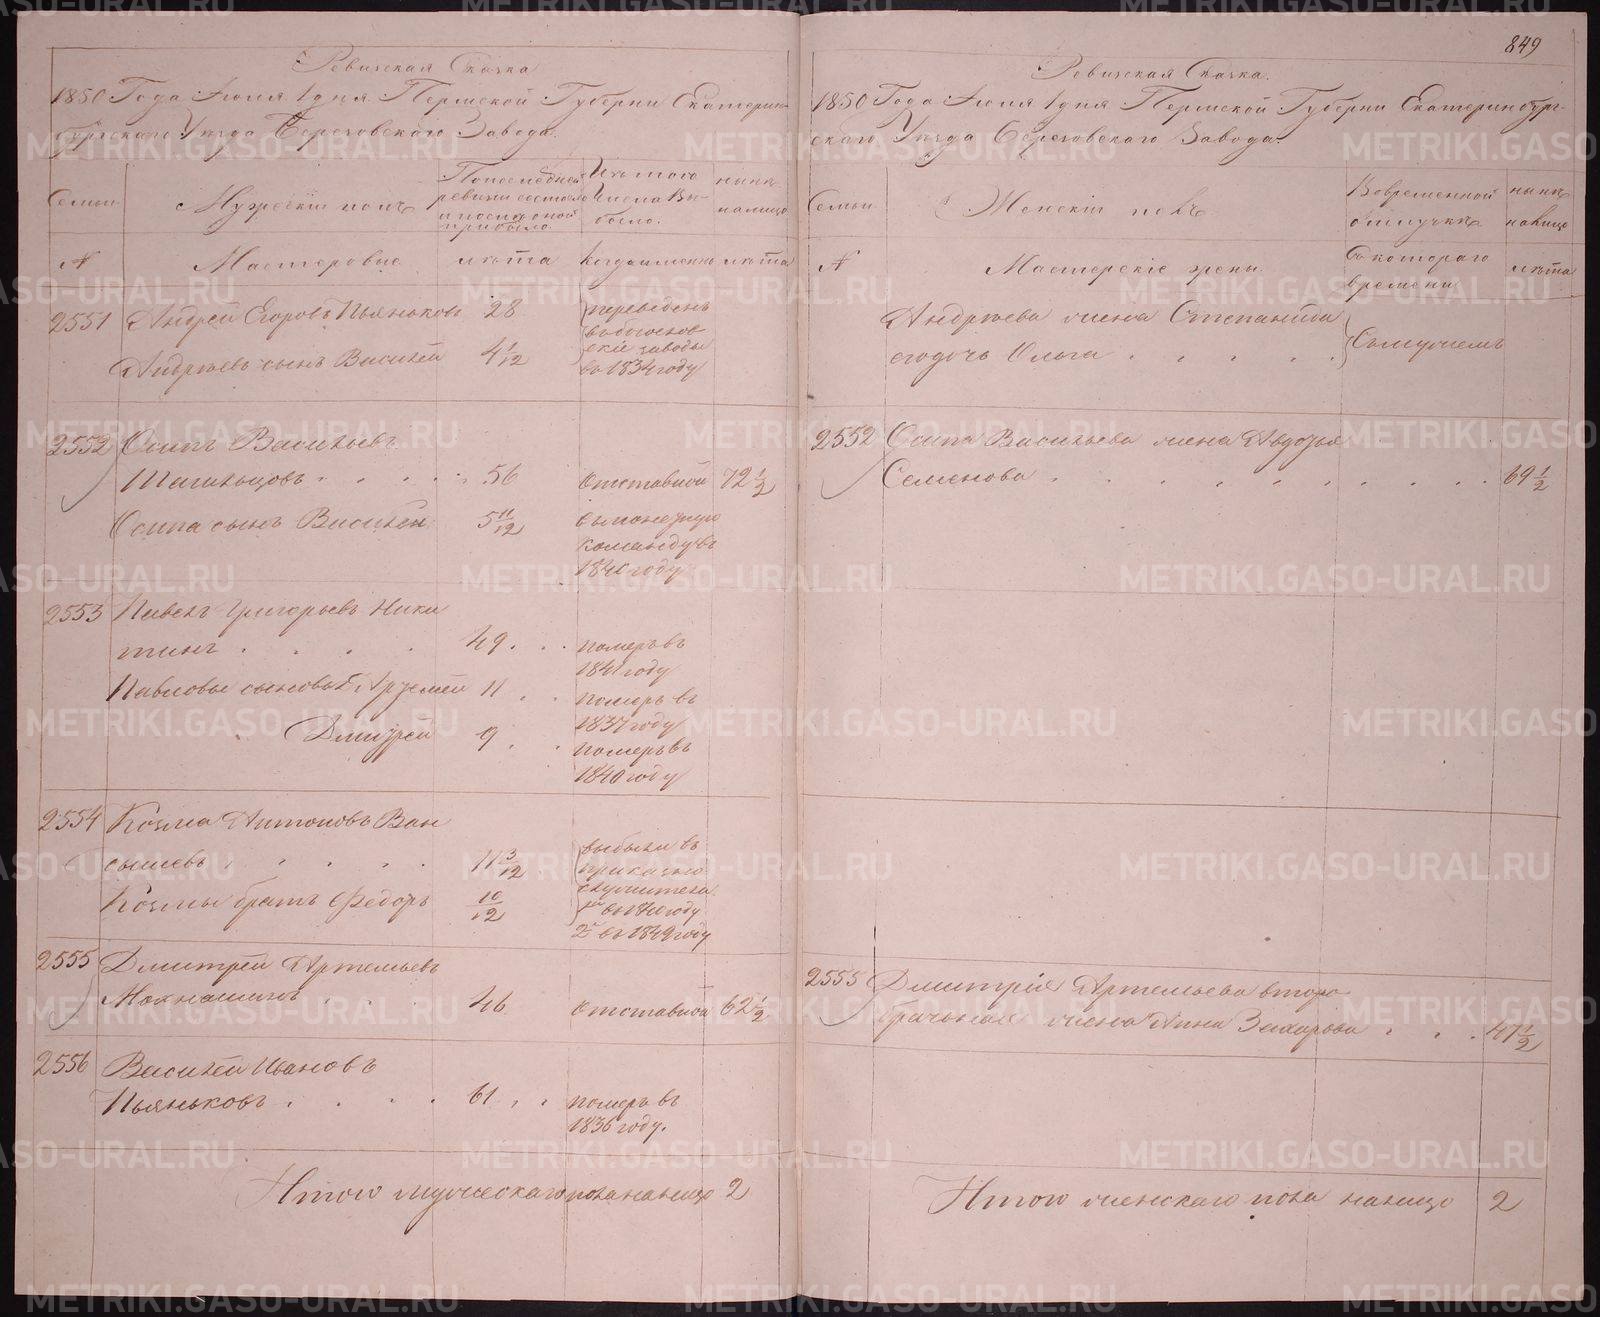 Ревизская Сказка
1850 Года Июля 1 дня Пермской Губерни Екатерин-
бургскаго Уезда Березовскаго Завода.
Семьи
Мужескій полъ
По последней ревизи состояло и после оной прибыло
Изъ того Числа Вы-было.
ныне налицо
№
Мастеровые
лета
Когда именно
лета
2551 Андрей Егоровъ Пьяньковъ 28
переведенъ
в богослов
скіе заводы
въ 1834 году
Андреевъ сынъ Василей 4 1/12
2552 Осипъ Васильевъ
Шагильцовъ 56 отставной 72 1/2
Осипа сынъ Василей 5 11/12
команду въ
году
2553 Павелъ Григорьевъ Ники
тинъ 49 померъ въ
1841 году
Павловы сыновья Артемей 11 померъ въ
1837 году
Дмитрей 9 померъ въ
1840 году
2554 Козма Антоновъ Ван
сышевъ 11 3/12
выбыли въ
приказно
служители
1й въ 1840 году
2й въ 1849 году
Козмы братъ Федоръ 10/12
2555 Дмитрей Артемьевъ
46 отставной 62 1/2
2556 Василей Ивановъ
Пьяньковъ 61 померъ въ
1836 году.
Итого мужескаго пола налицо 2
849
Ревизская Сказка.
1850 Года Июля 1 дня Пермской Губерни Екатеринбург-
скаго Уезда Березовскаго Завода.
Семьи
Женскій полъ
Во временной отлучке
ныне налицо
№
Мастерскіе жены
Съ котораго времени
лета
Андреева жена Степанида
его дочь Ольга
Съ мужемъ
2552 Осипа Васильева жена Авдотья
Семенова 69 1/2
2555 Дмитрія Артемьева второ
брачьная жена Анна Захарова 47 1/2
Итого женскаго пола налицо 2
METRIKI.GASO-URAL.RU